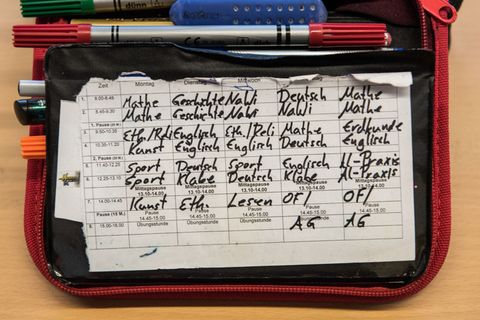 dünn
Zeit Montag Dienstag Mittwoch
1. 8.00-8.45 Mathe Geschichte NaWi Deutsch Mathe
2. 8.45-9.30 Mathe Geschichte NaWi NaWi Mathe
1. Pause
3. 9.50-10.35 Eth./Reli Englisch Eth./Reli Mathe Erdkunde
4. 10.35-11.20 Kunst Englisch Englisch Deutsch Englisch
2. Pause
5. 11.40-12.25 Sport Deutsch Sport Englisch U-Praxis
6. 12.25-13.10 Sport Klabe Deutsch Klabe
Mittagspause Mittagspause Mittagspause Mittagspause Mittagspause
13.10-14.00 13.10-14.00 13.10-14.00 13.10-14.00 13.10-14.00
7. 14.00-14.45 Kunst Eth. Lesen OF/ OF/
Pause (15 M.) Pause Pause Pause Pause Pause
14.45-15.00 14.45-15.00 14.45-15.00 14.45-15.00 14.45-15.00
8. 15.00-16.00 Übungsstunde Übungsstunde Übungsstunde AG AG